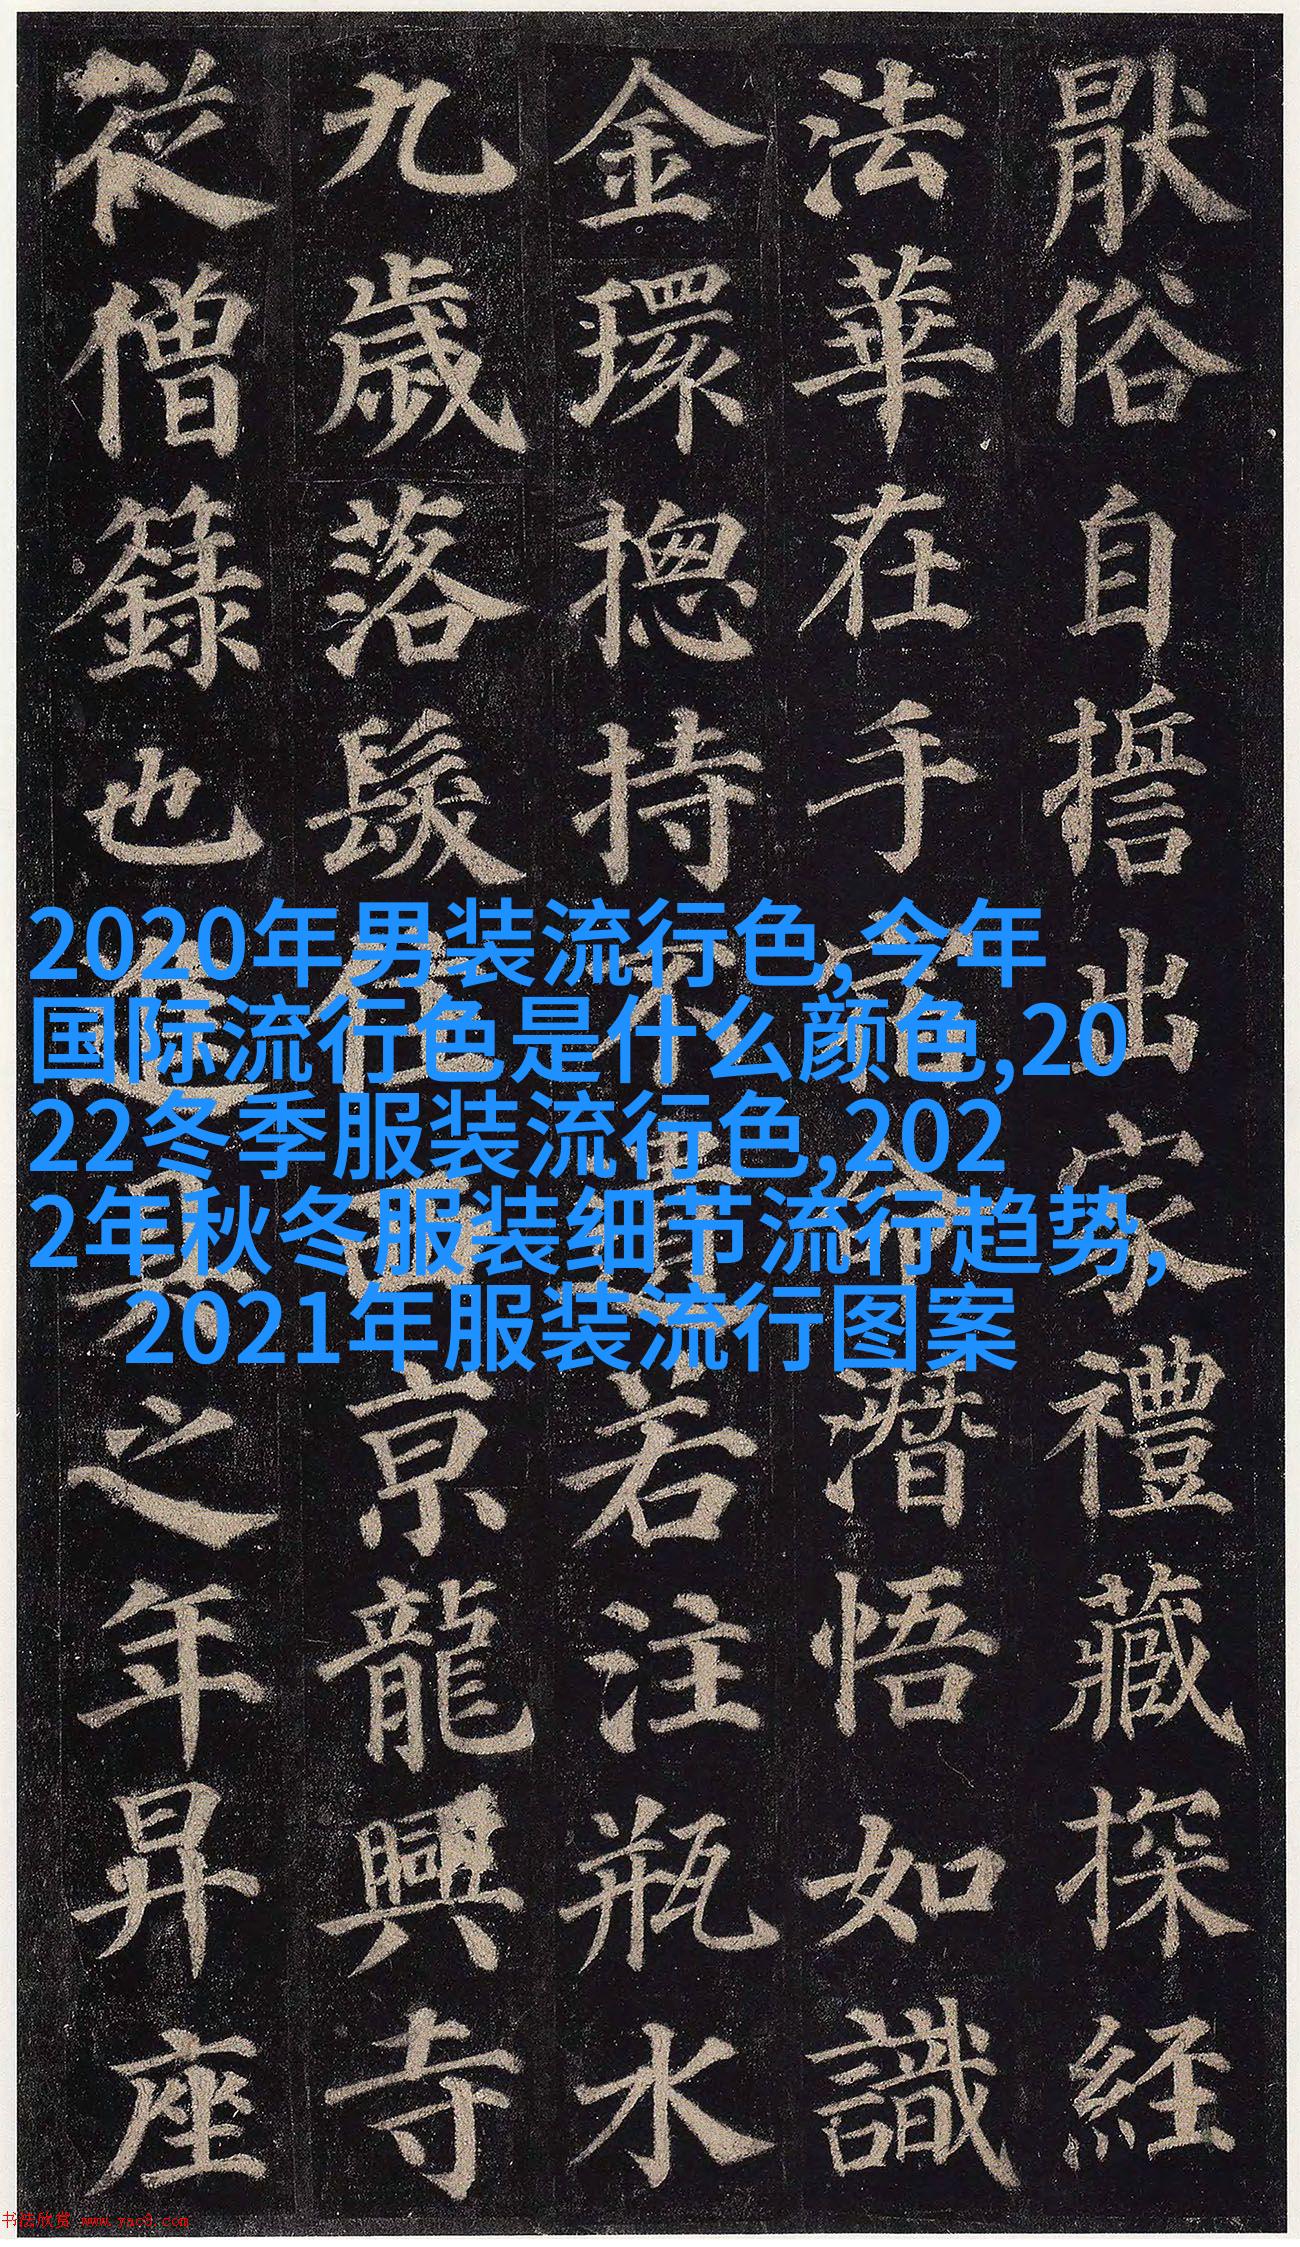 猒俗自誓出家禮藏探經
法華在手宿命潛悟如識
金環揔持不遺若注瓶水
九歲落髮住西京龍興寺
從僧籙也進具之年昇座
2020年男装流行色,今年
国际流行色是什么颜色,20
22冬季服装流行色,202
2年秋冬服装细节流行趋势,
2021年服装流行图案
书法欣赏 www.yac8.com